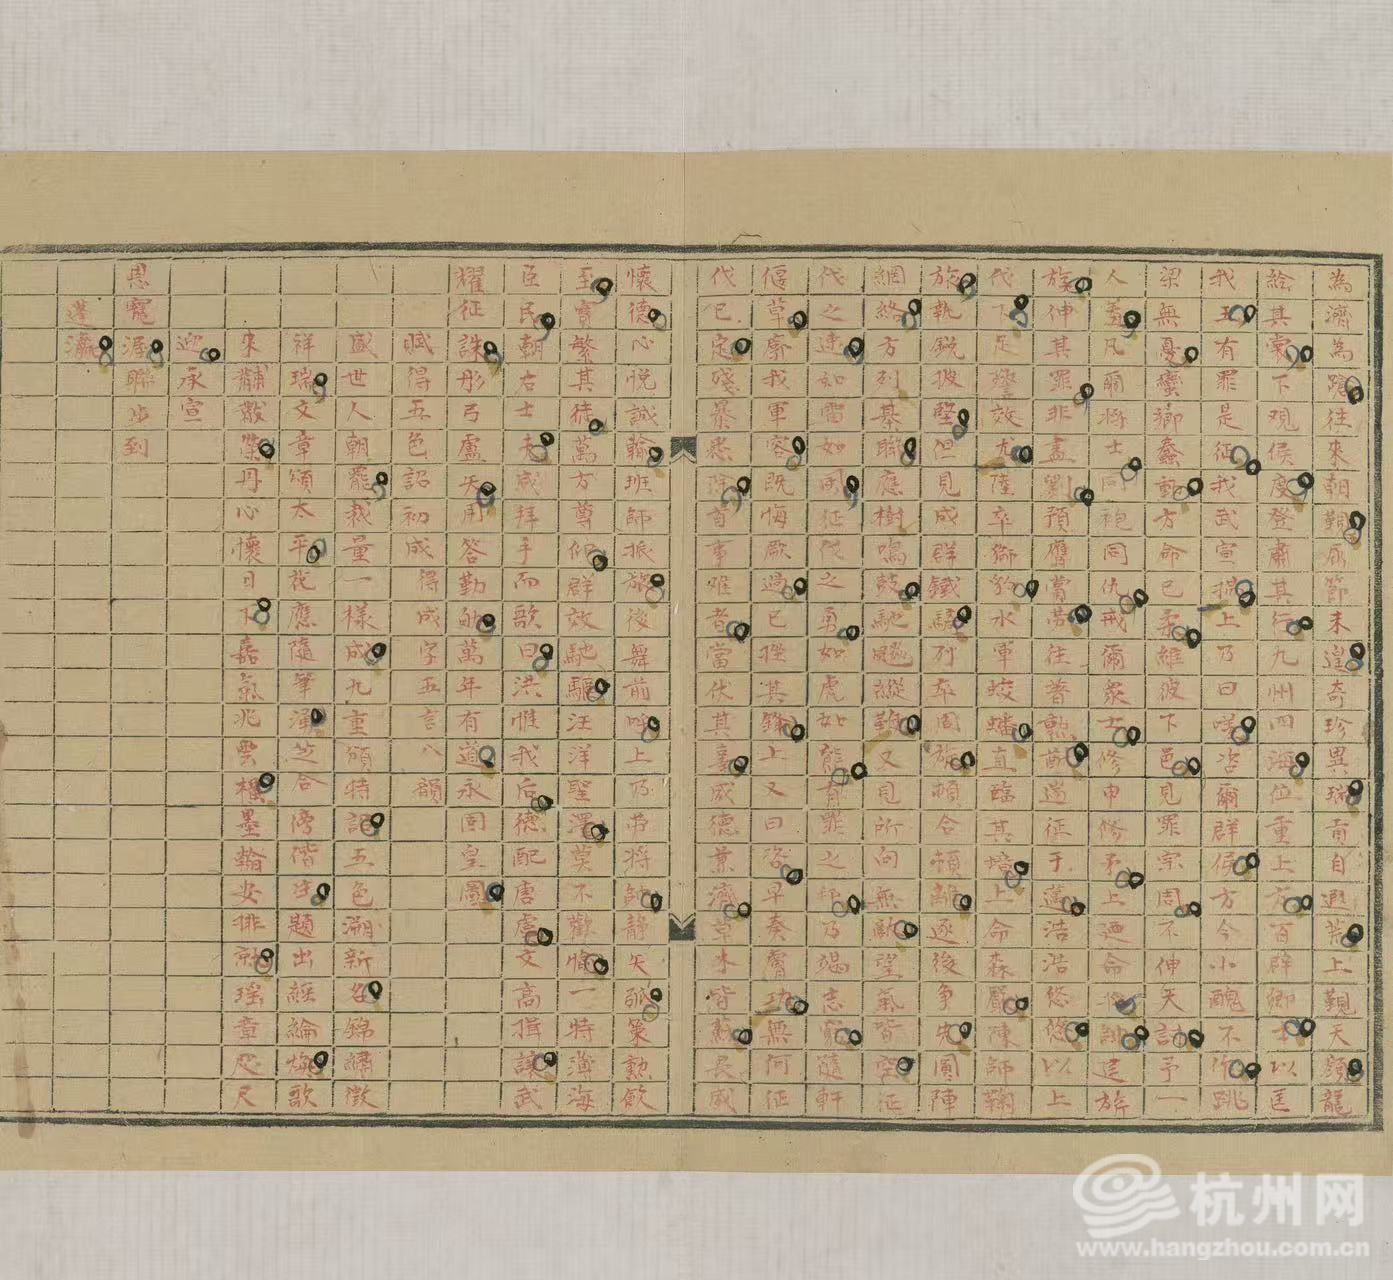 為濟為蹌往來朝覲屆節未遑奇珍異瑞貢自遐荒上觀天顏龍
給其裳下觀侯度登肅其行九州四海位重上方百辟卿士以匡
我王有罪是征我武宣揚上乃曰嗟咨爾群侯方今小醜不作跳
梁無憂蠻鄉蠢動方命已柔維彼下邑見罪宗周不伸天討予一
人羞凡爾將士同袍同仇戒爾眾士修申修矛上迺命將建旂
旄伸其罪非盡劉預膺蒿往著勲酋遄征于邁浩浩悠悠以上
代下足證效尤陸卒豹水軍蛟蟠直臨其境上命森嚴陳師鞠
旅執銳披堅但見成群鐵騎列卒周旋頓合頓離逐後爭先圓陣
網絡方列棊聯應樹鳴鼓馳縱難又見所向無敵望氣皆空征
伐之速如雷如風征伐之勇如虎如龍有罪之邦乃竭志窮隨軒
偃草廓我軍容既悔厥過已挫其鋒上又曰咨早奏膚功無何征
伐已定殘暴悉除首事雖者當伏其辜威德兼濟草木皆蘇長威
懷德心悅誠輸班師振旅後舞前呼上乃命將韜靜矢弧策勳飲
至實繁其徒萬方尊仰群效馳驅汪洋聖澤莫不歡愉一特薄海
臣民朝右士夫咸拜手而歌曰洪惟我后德配唐虞文高揖讓武
耀征誅彤弓盧矢用答勤劬萬年有道永固皇圖
賦得五色詔初成 得成字五言八韻
盛世人朝罷裁量一樣成九重頒特詔五色溯新名錦繡徵
祥瑞文章頌太平花應隨筆湧芝合傍階生題出經綸煥歌
來黼黻榮丹心懷日下嘉氣兆雲橫墨翰安排就瑤章咫尺
迎承宣
恩寵渥聯步到
蓬瀛
杭州网
www.hangzhou.com.cn